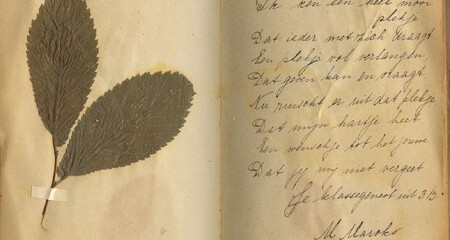 Ik ken een heel mooi
plekje
Dat ieder met zich draagt
Een plekje vol verlangen
Dat geven kan en vraagt
Nu ruischt er uit dat plekje
Dat mijn hartje heet
Een wenschje tot het jouwe
Dat jij mij niet vergeet
Je klassegenoot uit 3B.
M. Maroko